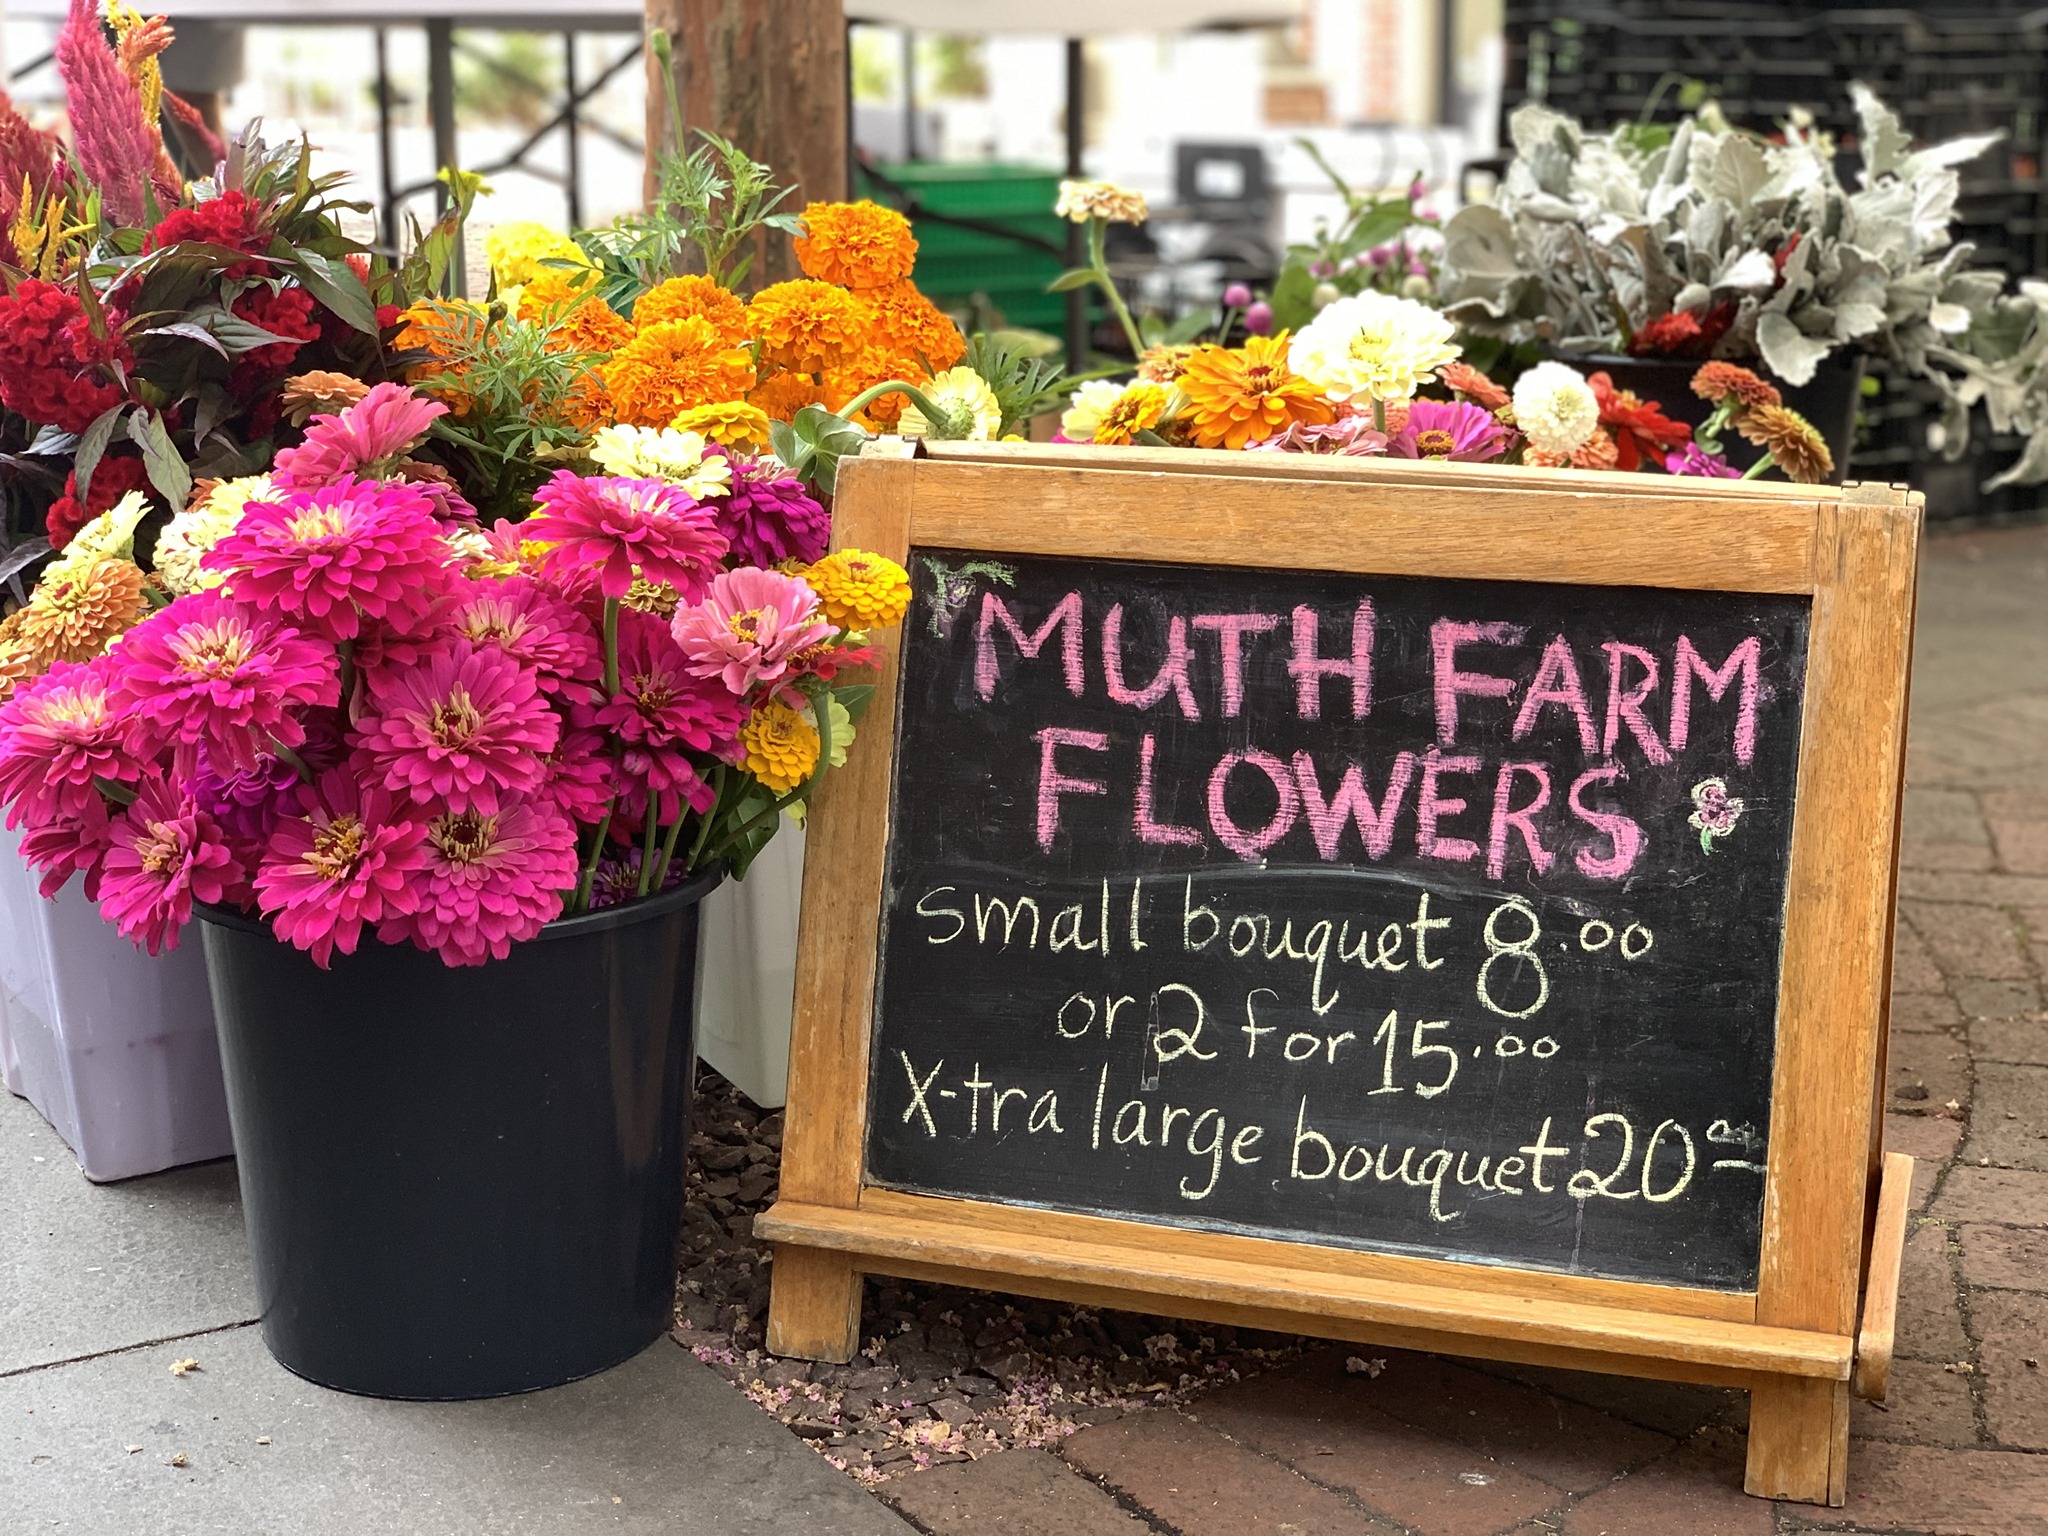 MUTH FARM
FLOWERS
small bouquet 8.00
or 2 for 15.00
X-tra large bouquet 20.00